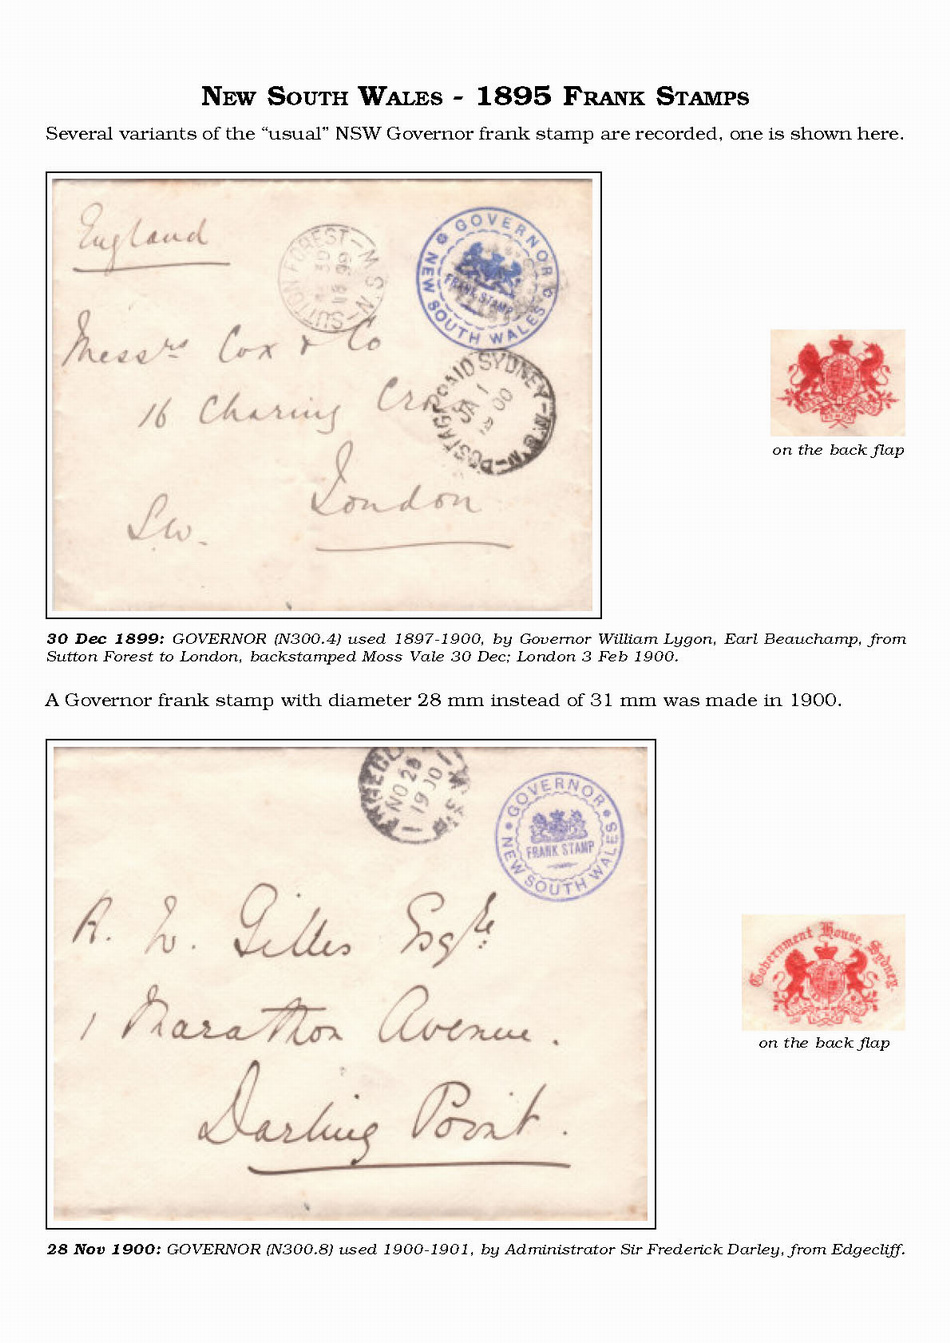 NEW SOUTH WALES - 1895 FRANK STAMPS
Several variants of the “usual” NSW Governor frank stamp are recorded, one is shown here.
England
SUTTON FOREST - N.S.W
30
99
GOVERNOR
NEW SOUTH WALES
FRANK STAMP
Messrs Cox & Co
16 Charing
POSTAGE PAID SYDNEY - N.S.W
1
JA 1
19 00
London
S.W.
on the back flap
30 Dec 1899: GOVERNOR (N300.4) used 1897-1900, by Governor William Lygon, Earl Beauchamp, from
Sutton Forest to London, backstamped Moss Vale 30 Dec; London 3 Feb 1900.
A Governor frank stamp with diameter 28 mm instead of 31 mm was made in 1900.
NO 28
19 00
1
GOVERNOR
FRANK STAMP
NEW SOUTH WALES
R. W. Gilles Esqre
1 Marathon Avenue.
Darling Point.
Government House, Sydney.
on the back flap
28 Nov 1900: GOVERNOR (N300.8) used 1900-1901, by Administrator Sir Frederick Darley, from Edgecliff.